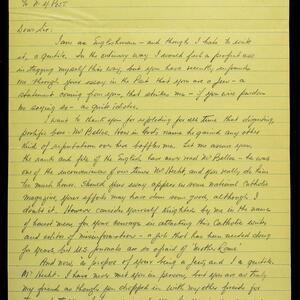 To N.Y. Post
Dear Sir:
I am an Englishman – and though I hate to write
it, a gentile. In the ordinary way I would feel a perfect ass
in tagging myself this way, but you have recently informed
me through your essay in the Post that you are a Jew – a
statement coming from you, that strikes me – if you will pardon
me saying so – as quite idiotic.
I want to thank you for exploding for all time that disgusting
prolific bore – Mr Belloc. How in God's name he gained any other
kind of reputation ever has baffled me. Let me assure you
the rank and file of the English have never read Mr Belloc – he was
one of the of our times Mr Hecht and you really do him
too much honor. Should your essay appear in some national Catholic
magazine your efforts may have done some good, although I
doubt it. However consider yourself knighted by me in the name
of honest men for your courage in attacking this Catholic writer
and artist of misinformation – a job that has been needed doing
for years but U.S. journals are so afraid of 'Mother Rome'
And now 'a propos' of your being a Jew, and I a gentile.
Mr Hecht – I have never met you in person, but you are as truly
my friend as though you chopped in with my other friends for